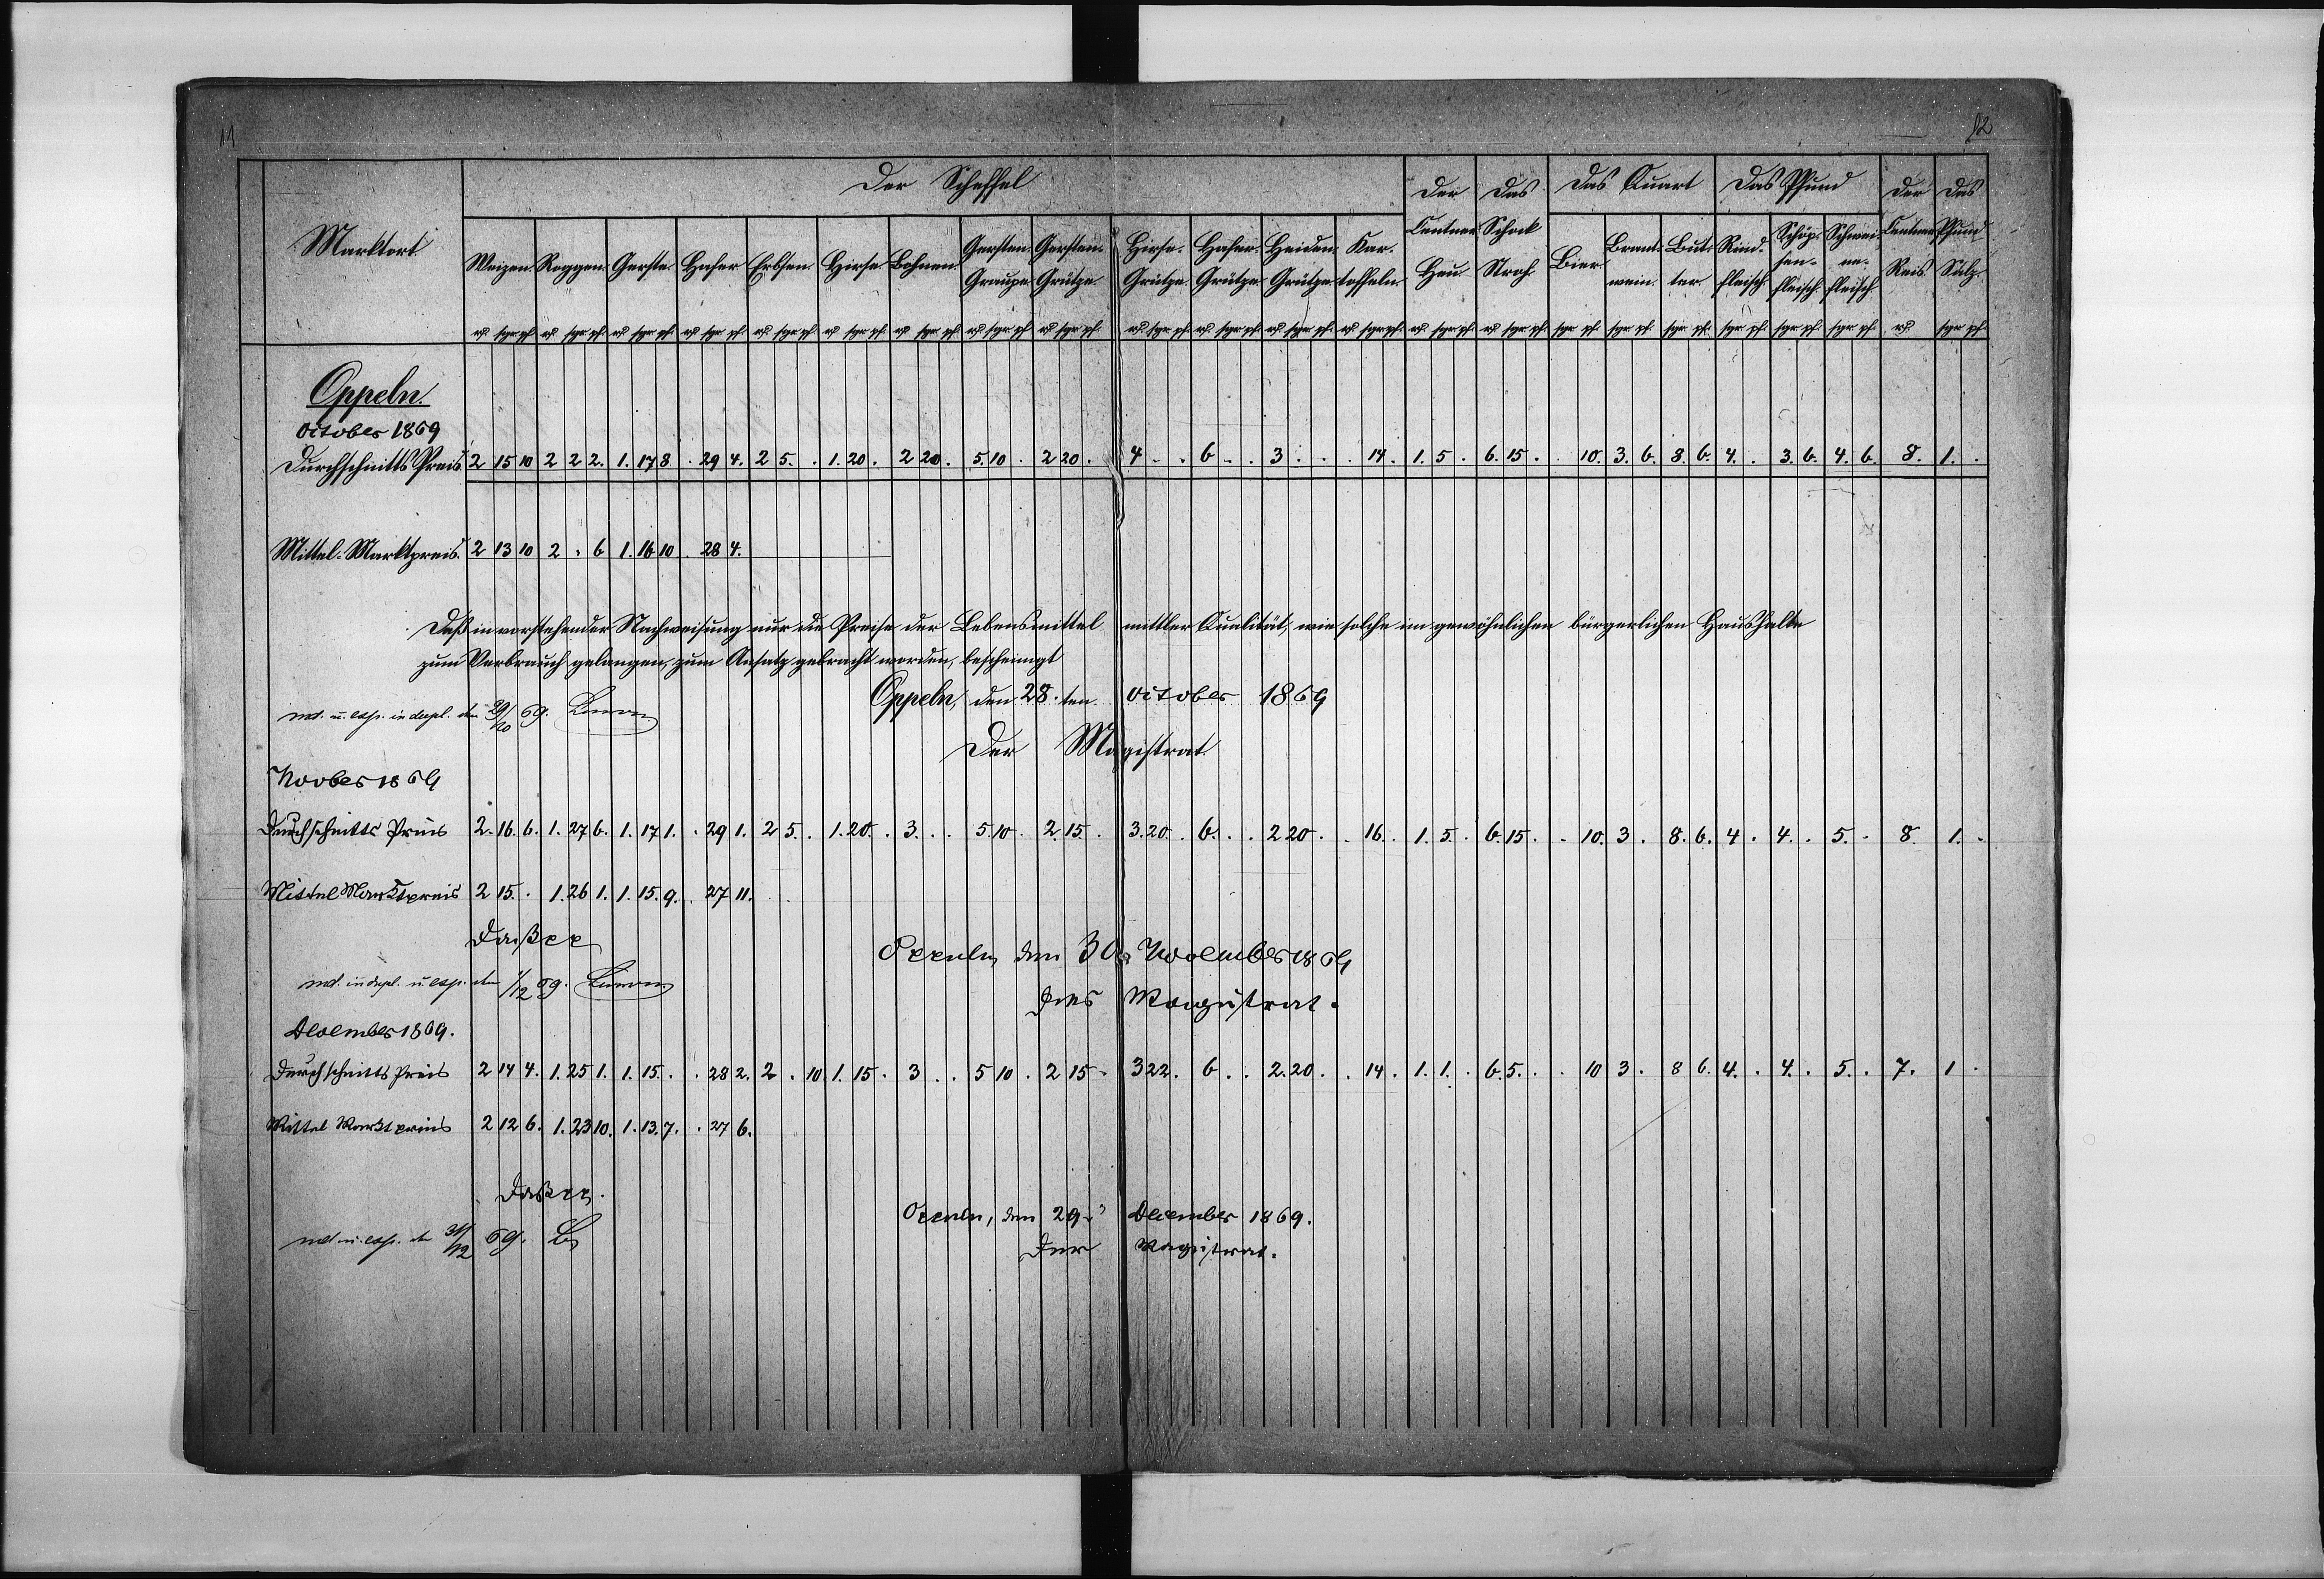 11
12
Marktort
Der Scheffel
Der Centner Heu
Das Schock Stroh
Das Quart
Das Pfund
Der Centner Reis
Das Pfund Salz
Weizen. Roggen. Gerste. Hafer Erbsen. Hirse Bohnen. Gersten-Graupe Gersten-Grütze. Hirse-Grütze. Hafer-Grütze. Heiden-Grütze Kartoffeln. Bier. Brantwein. Butter. Rindfleisch Schöpsenfleisch. Schweinefleisch.
Oppeln.
October 1869
Durchschnitts Preis. 2 15 10 2 2 2. 1. 17 8 . 29 4. 2 5. . 1. 20 . 2 20 . 5. 10 . 2 20 . 4 . . 6 . . 3 . . . 14. 1. 5 . 6. 15 . . 10. 3. 6. 8. 6. 4. . 3. 6. 4. 6. 8. 1. .
Mittel-Marktpreis. 2 13 10 2 . 6 1. 16 10 . 28 4.
Daß in vorstehender Nachweisung nur die Preise der Lebensmittel mittler Qualität, wie solche im gewöhnlichen bürgerlichen Haushalte
zum Verbrauch gelangen, zum Ansatz gebracht worden, bescheinigt
Oppeln, den 28. ten October 1869
in dupl. den 29/10 69.
Der Magistrat
Novber 1869
Durchschnitts Preis 2. 16. 6. 1. 27 6. 1. 17 1. . 29 1. 2 5. . 1. 20. . 3. . . 5. 10 . 2. 15. . 3. 20. . 6. . . 2 20 . . 16. . 1. 5. . 6. 15. . . 10. 3 . 8. 6. 4 . 4. . 5. . 8. 1. .
Mittel Marktpreis 2 15. . 1. 26 1. 1. 15. 9. . 27 11.
Daß pp
Oppeln, den 30. November 1869
in dupl. u. exp. den 1/12 69.
Der Magistrat.
December 1869.
Durchschnitts Preis 2 14 4. 1. 25 1. 1. 15. . . 28 2. 2 . 10. 1. 15. . 3 . . 5 10 . 2 15 . 3 22. . 6 . . 2. 20. . . 14. . 1. 1. . 6. 5. . . 10 3 . 8 6. 4. . 4. . 5. . 7. 1 .
Mittel Marktpreis 2 12 6. 1. 23 10. 1. 13. 7. . 27 6.
Daß pp.
Oppeln, den 29. December 1869.
u. exp. d 31/12 69.
Der Magistrat.